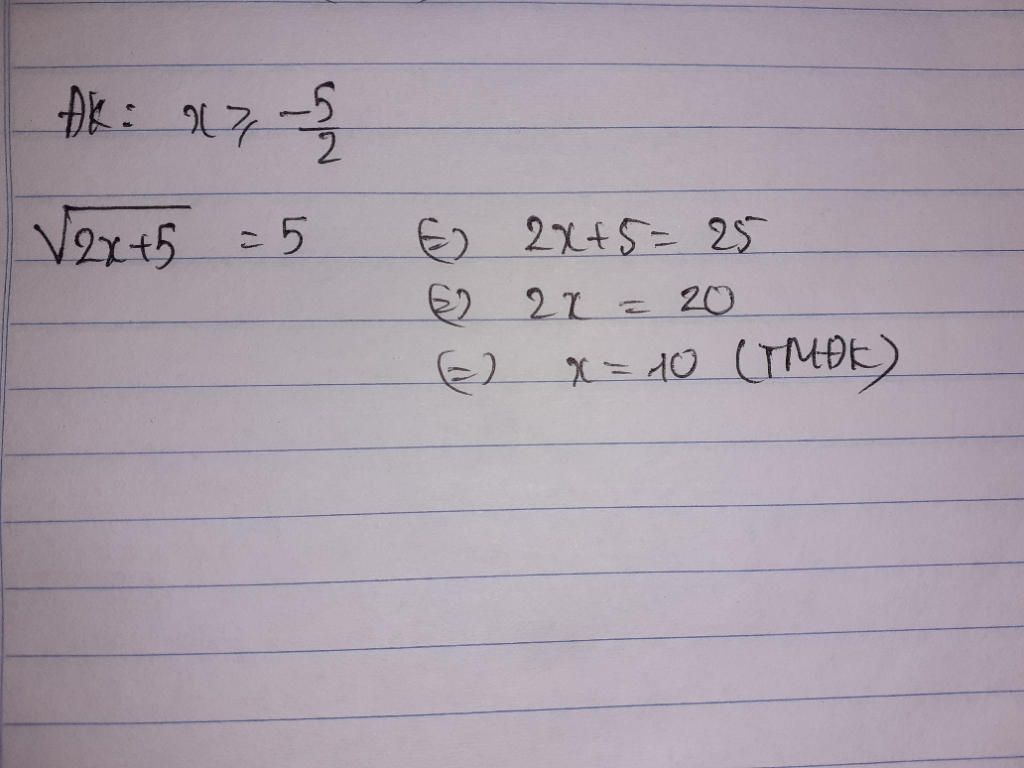 ĐK: x ⩾ -5/2
√(2x+5) = 5 ⇔ 2x+5 = 25
⇔ 2x = 20
⇔ x = 10 (TMĐK)